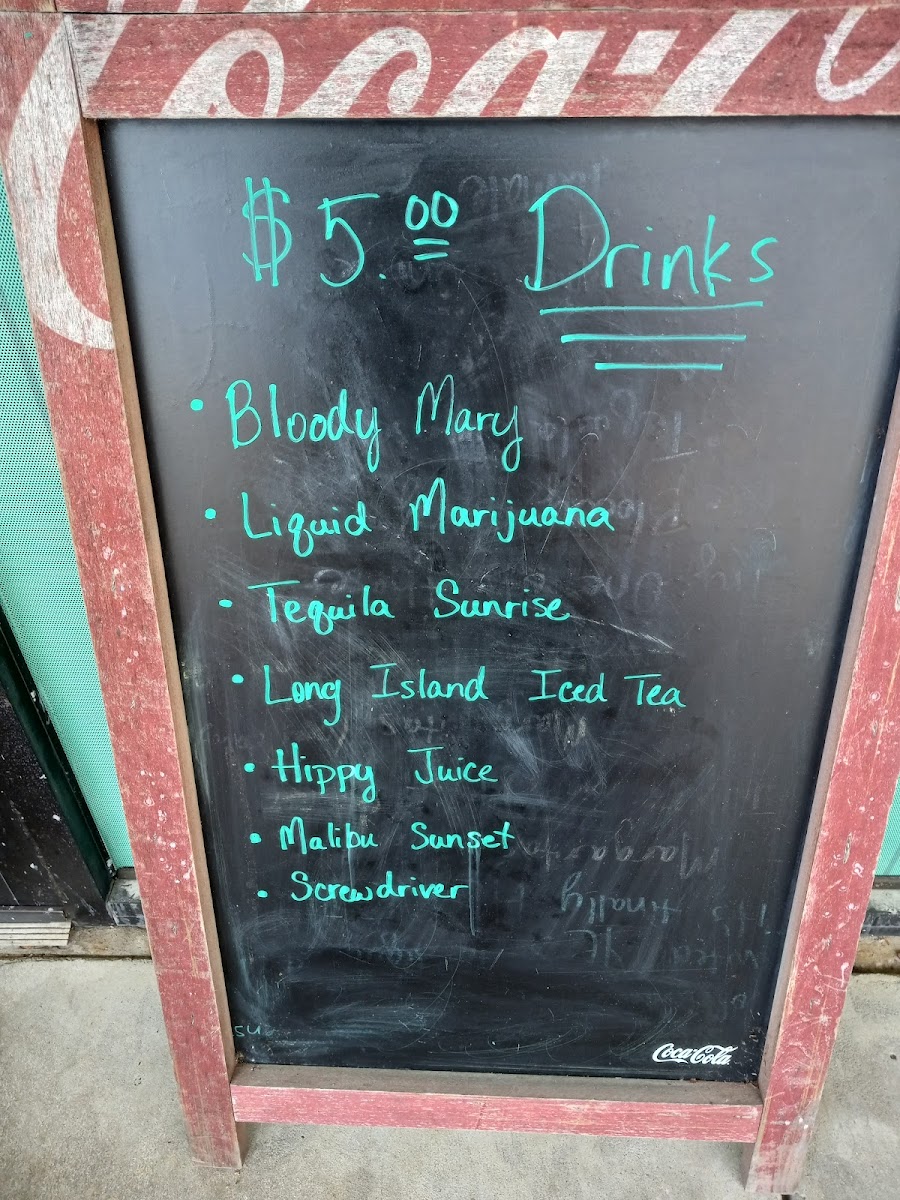 Coca-Co
$5.00 Drinks
• Bloody Mary
• Liquid Marijuana
• Tequila Sunrise
• Long Island Iced Tea
• Hippy Juice
• Malibu Sunset
• Screwdriver
su
Coca-Cola